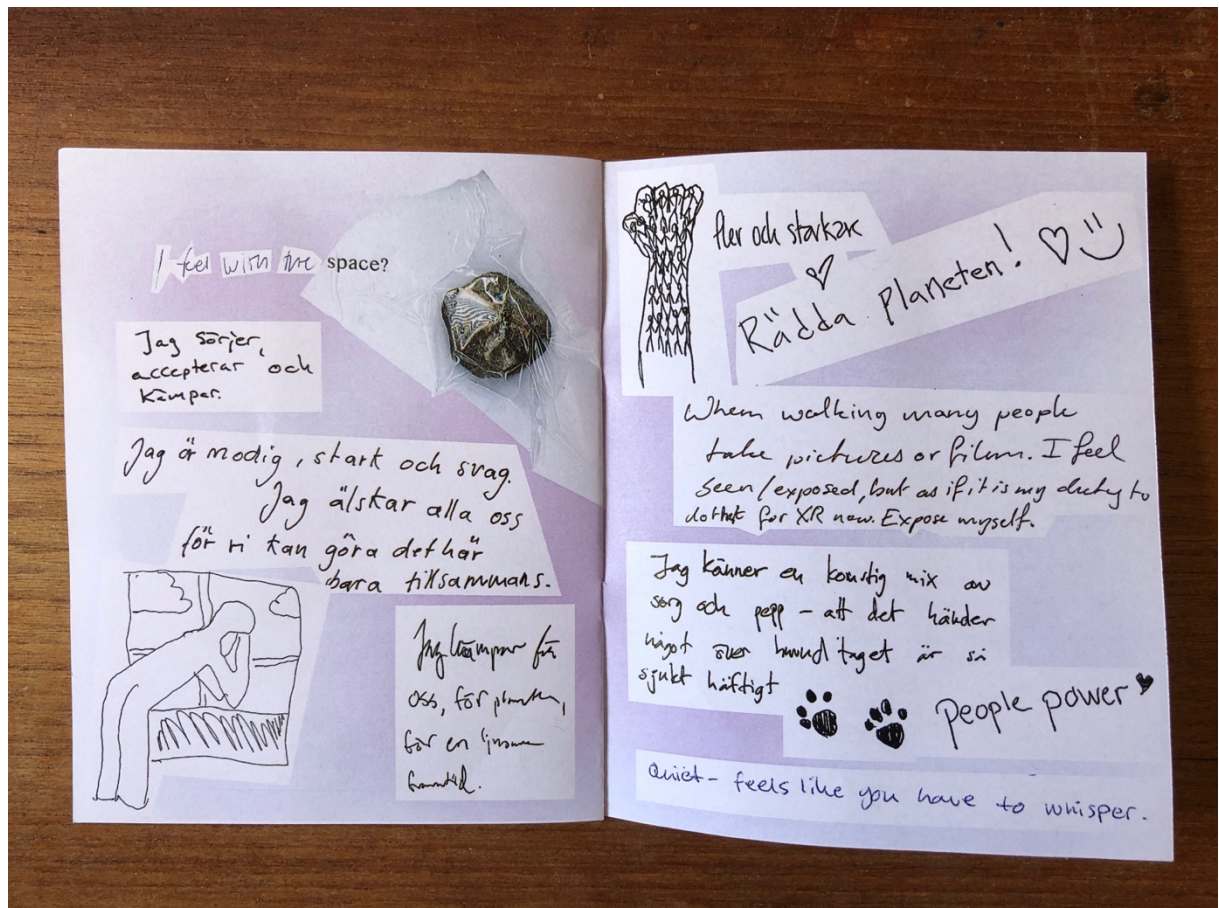 I feel with the space?
Jag sörjer,
accepterar och
kämpar.
Jag är modig, stark och svag.
Jag älskar alla oss
för vi kan göra det här
bara tillsammans.
Jag kämpar för
oss, för planeten,
för en ljusare
framtid.
fler och starkare
Rädda planeten!
When walking many people
take pictures or film. I feel
seen/exposed, but as if it is my duty to
do that for XR now. Expose myself.
Jag känner en konstig mix av
sorg och pepp – att det händer
något över huvud taget är så
sjukt häftigt
People power
Quiet – feels like you have to whisper.